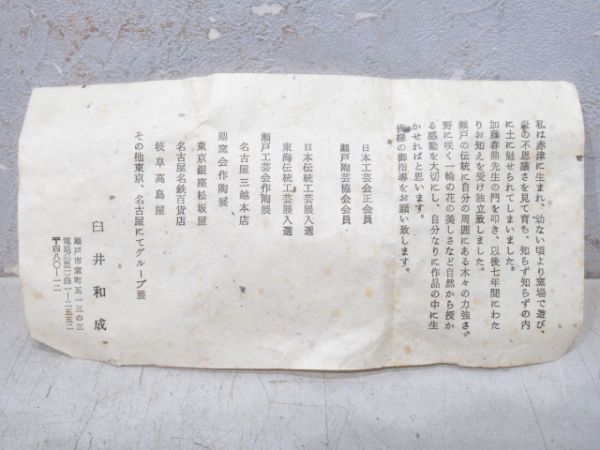 私は赤津に生まれ、幼ない頃より窯場で遊び、
炎の不思議さを見て育ち、知らず知らずの内
に土に魅せられてしまいました。
加藤春鼎先生の門を叩き、以後七年間にわた
りお知えを受け独立致しました。
瀬戸の伝統に自分の周囲にある木々の力強さ、
野に咲く一輪の花の美しさなど自然から授か
る感動を大切にし、自分なりに作品の中に生
かせればと思います。
皆様の御指導をお願い致します。
日本工芸会正会員
瀬戸陶芸協会会員
日本伝統工芸展入選
東海伝統工芸展入選
瀬戸工芸会作陶展
名古屋三越本店
鼎窯会作陶展
東京銀座松坂屋
名古屋名鉄百貨店
岐阜高島屋
その他東京、名古屋にてグループ展
臼井和成
瀬戸市窯町五一三の三
電話〇(五六一)四一-二五五二
〒四八〇-一二